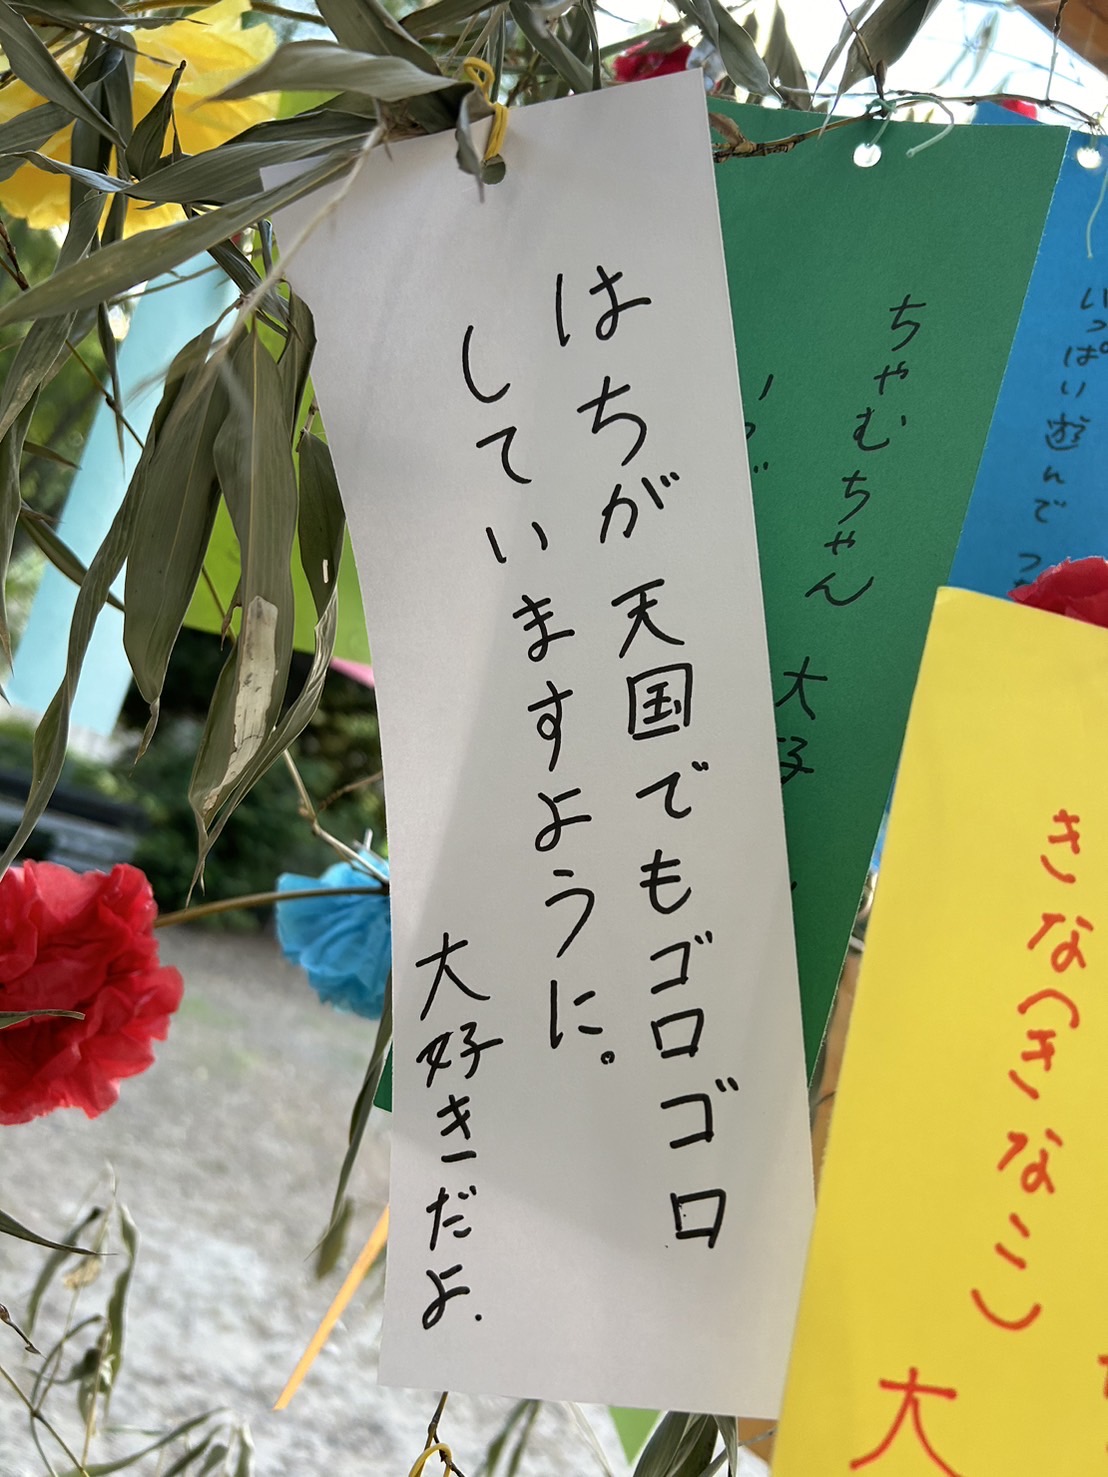 はちが天国でもゴロゴロ
していますように。
大好きだよ.
ちゃむちゃん 大好
いっぱい遊んで
きなこ(きなこ)
大